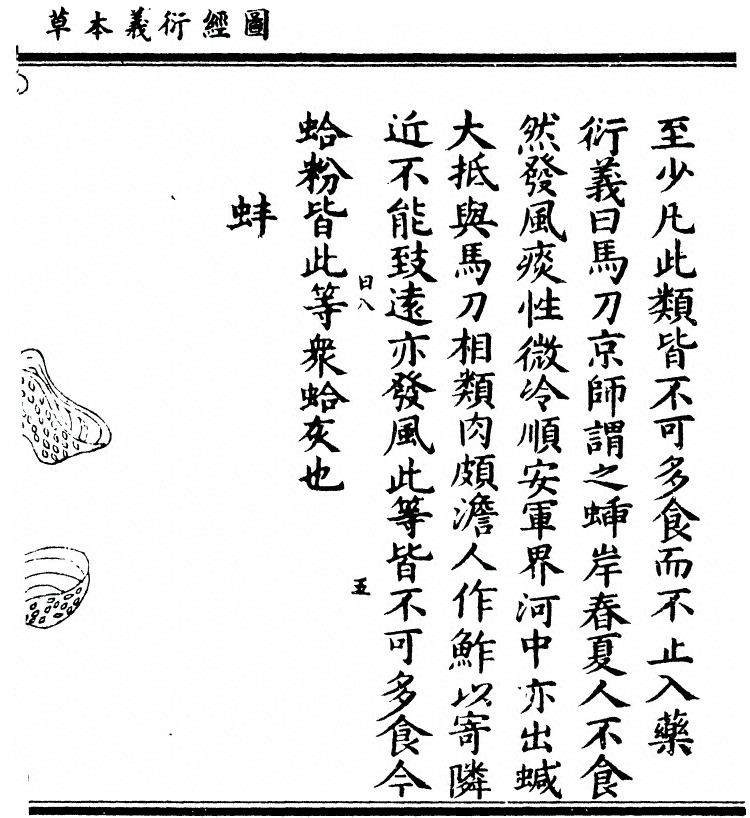 圖經衍義本草
至少凡此類皆不可多食而不止入藥
衍義曰馬刀京師謂之𧍧岸春夏人不食
然發風痰性微冷順安軍界河中亦出蝛
大抵與馬刀相類肉頗澹人作鮓以寄隣
近不能致遠亦發風此等皆不可多食今
日八
五
蛤粉皆此等衆蛤灰也
蚌